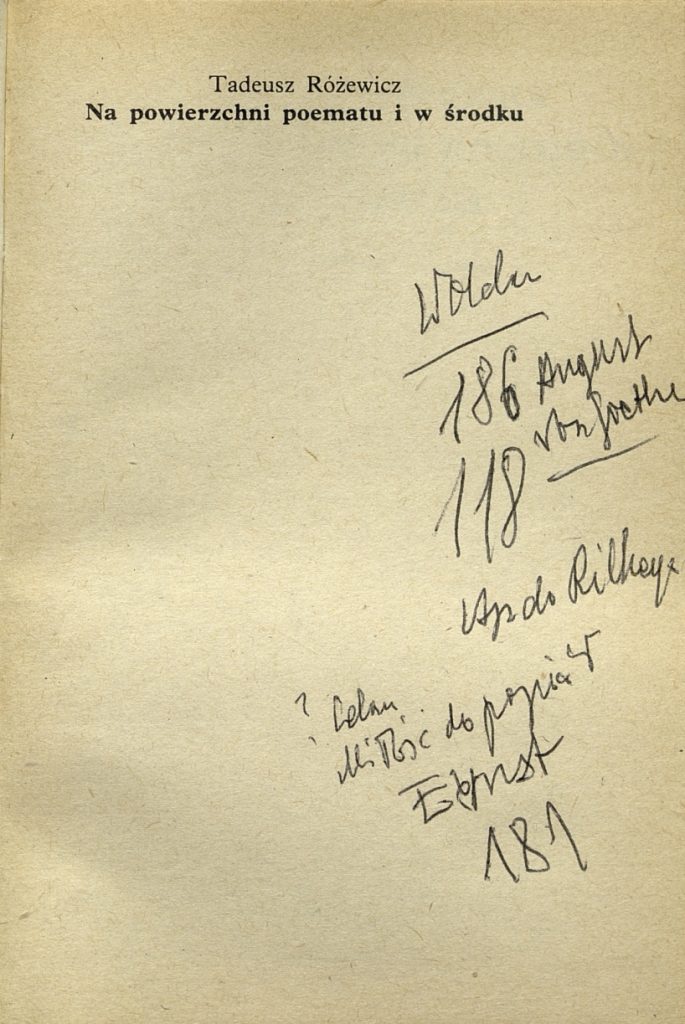 Tadeusz Różewicz
Na powierzchni poematu i w środku
186 August
von Goethe
118
do
? Celan
Miłość do popiołów
Ernst
181